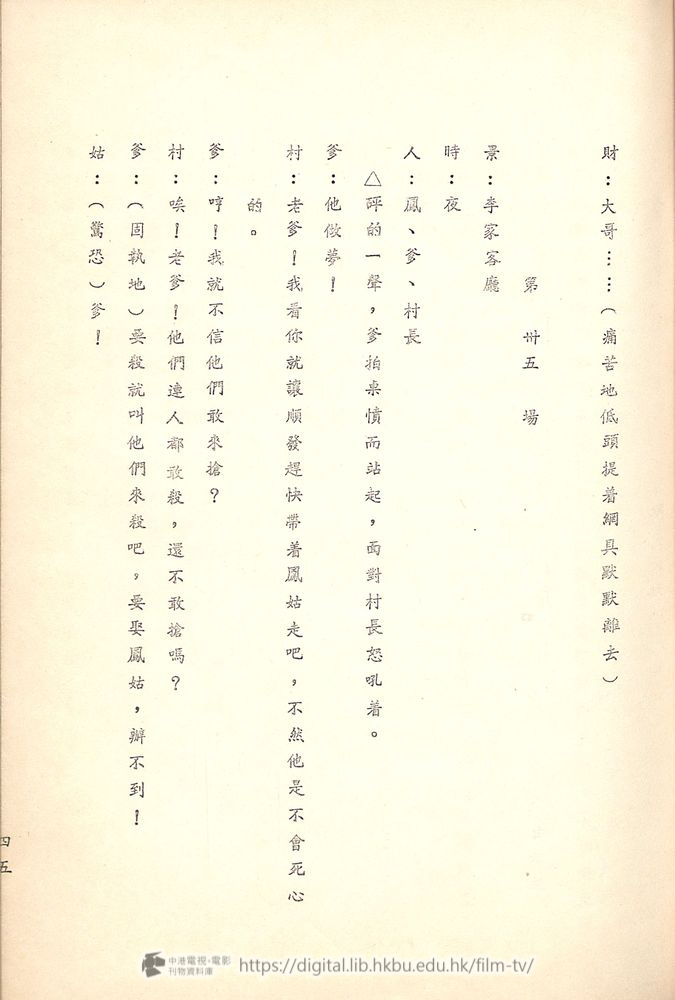 財：大哥……（痛苦地低頭提着網具默默離去）
第卅五場
景：李家客廳
時：夜
人：鳳、爹、村長
△砰的一聲，爹拍桌憤而站起，面對村長怒吼着。
爹：他做夢！
村：老爹！我看你就讓順發趕快帶着鳳姑走吧，不然他是不會死心
的。
爹：哼！我就不信他們敢來搶？
村：唉！老爹！他們連人都敢殺，還不敢搶嗎？
爹：（固執地）要殺就叫他們來殺吧，要娶鳳姑，辦不到！
姑：（驚恐）爹！
四五
中港電視·電影
刊物資料庫
https://digital.lib.hkbu.edu.hk/film-tv/